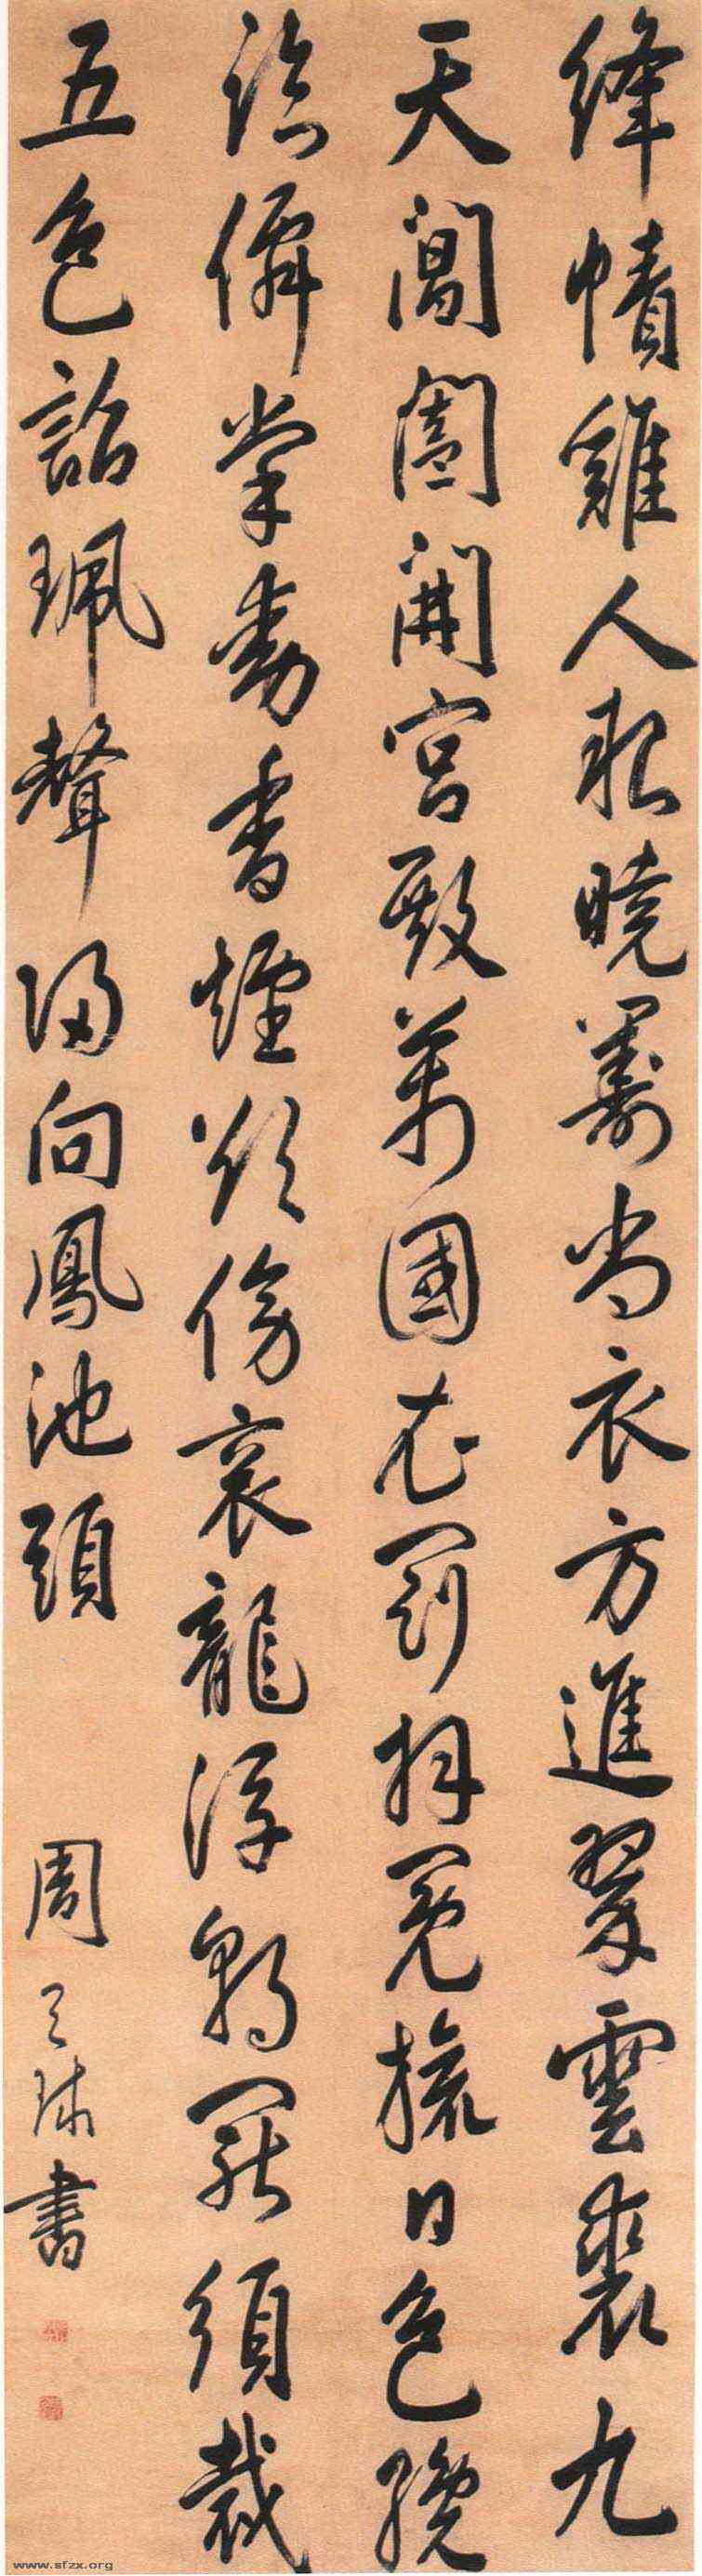 絳幘雞人報曉籌尚衣方進翠雲裘九
天閶闔開宮殿萬國衣冠拜冕旒日色纔
臨僊掌動香煙欲傍袞龍浮朝罷須裁
五色詔珮聲歸向鳳池頭
周天球書
www.sfzx.org